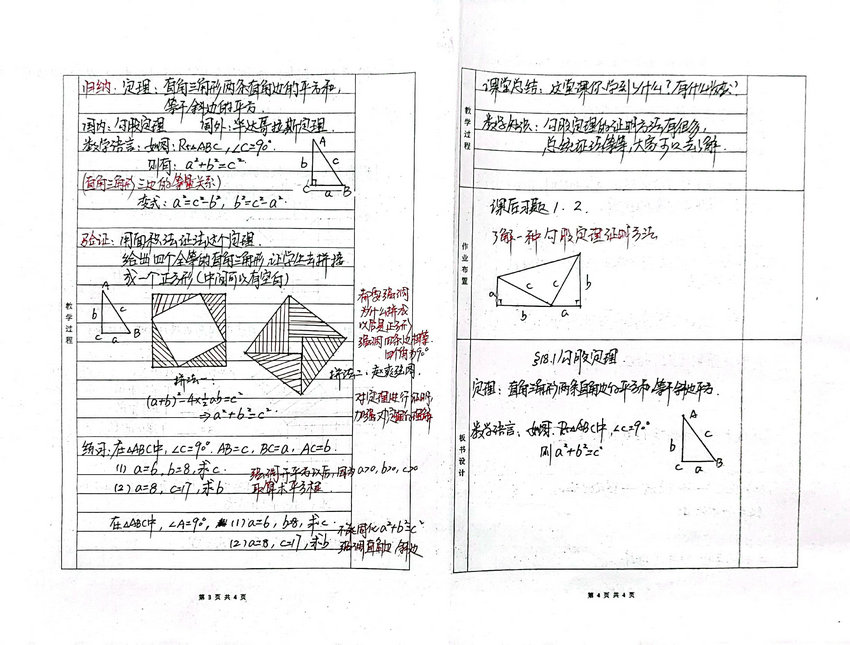 教学过程
归纳: 定理: 直角三角形两条直角边的平方和,
等于斜边的平方.
国内: 勾股定理 国外: 毕达哥拉斯定理.
数学语言: 如图: Rt△ABC, ∠C=90°.
则有: a²+b²=c².
(直角三角形三边的等量关系)
变式: a²=c²-b², b²=c²-a².
A
b
c
C
a
B
验证: 用面积法证法这个定理.
给出四个全等的直角三角形, 让学生去拼接
成一个正方形(中间可以有空白)
A
b
c
C
a
B
需要强调
为什么拼成
以后是正方形
强调四条边相等
四个角为90°
拼法一:
拼法二: 赵爽弦图.
(a+b)²-4×½ab=c²
⇒a²+b²=c².
对定理进行证明,
加强对定理的理解
练习: 在△ABC中, ∠C=90°. AB=c, BC=a, AC=b.
(1) a=6, b=8, 求c.
强调开平方以后, 因为a>0, b>0, c>0
(2) a=8, c=17, 求b
取算术平方根.
在△ABC中, ∠A=90°, (1) a=6, b=8, 求c.
不能固化a²+b²=c²
(2) a=8, c=17, 求b
强调直角边 斜边
第 3 页 共 4 页
教学过程
课堂总结: 这堂课你学到了什么? 有什么
勾股定理的证明方法有很多,
总统证法等等, 大家可以去了解.
作业布置
课后习题 1. 2.
了解一种勾股定理证明方法
a
c
c
b
b
a
板书设计
§18.1 勾股定理.
定理: 直角三角形两条直角边的平方和等于斜边平方.
数学语言: 如图. Rt△ABC中, ∠C=90°
则 a²+b²=c²
A
b
c
C
a
B
第 4 页 共 4 页